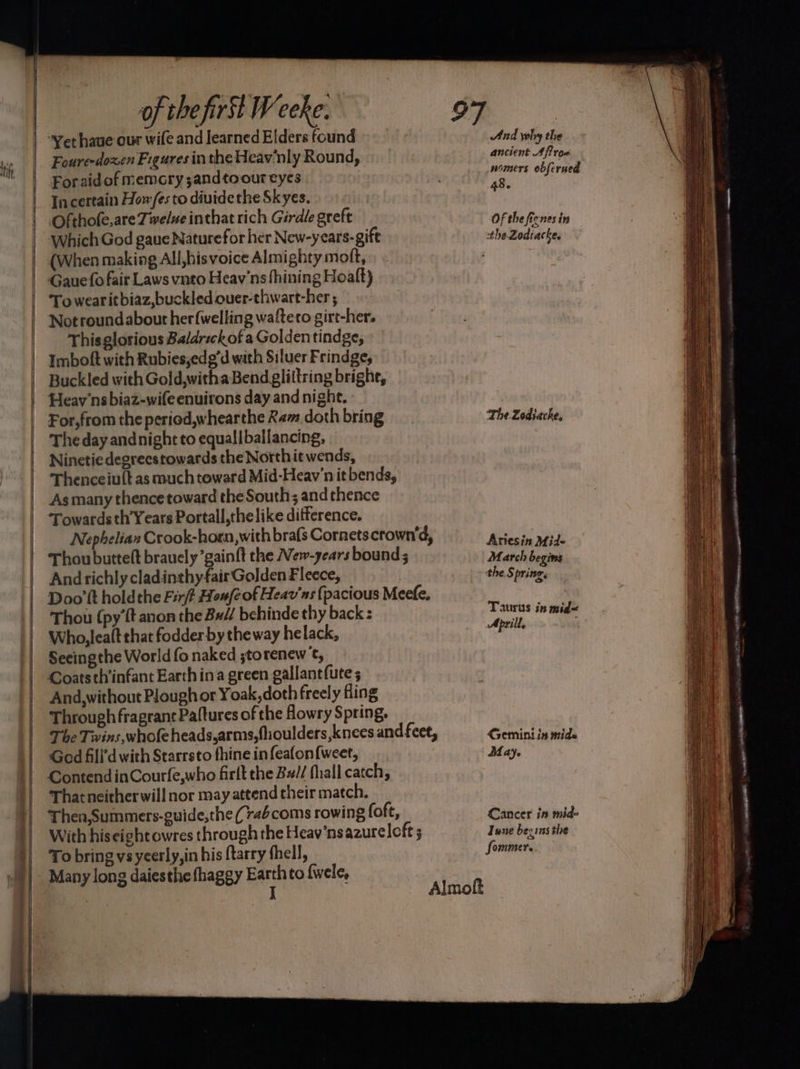 of the first Weeke. 97
Yet haue our wise and learned Elders found
Foure-dozen Figures in the Heav'nly Round,
For aid of memory; and to our eyes
In certain Howses to diuide the Skyes.
Of those, are Twelue in that rich Girdle greft
Which God gaue Nature for her New-years-gift
(When making All, his voice Almighty most,
Gaue so fair Laws vnto Heav'ns shining Hoast)
To wear it biaz, buckled ouer-thwart-her;
Not round about her swelling waste to girt-her.
This glorious Baldrick of a Golden tindge,
Imbost with Rubies, edg'd with Siluer Frindge,
Buckled with Gold, with a Bend glittring bright,
Heav'ns biaz-wise enuirons day and night.
For, from the period, whear the Ram doth bring
The day and night to equall ballancing,
Ninetie degrees towards the North it wends,
Thence iust as much toward Mid-Heav'n it bends,
As many thence toward the South; and thence
Towards th'Years Portall, the like difference.
Nephelian Crook-horn, with brass Cornets crown'd,
Thou buttest brauely 'gainst the New-years bound;
And richly clad in thy fair Golden Fleece,
Doo'st hold the First House of Heav'ns spacious Meese.
Thou spy'st anon the Bull behinde thy back:
Who, least that fodder by the way he lack,
Seeing the World so naked; to renew't,
Coats th'infant Earth in a green gallant sute;
And, without Plough or Yoak, doth freely fling
Through fragrant Pastures of the flowry Spring.
The Twins, whose heads, arms, shoulders, knees and feet,
God fill'd with Starrs to shine in season sweet,
Contend in Course, who first the Bull shall catch,
That neither will nor may attend their match.
Then, Summers-guide, the Crab coms rowing soft,
With his eight owres through the Heav'ns azure loft;
To bring vs yeerly, in his starry shell,
Many long daies the shaggy Earth to swele.
I Almost
And why the
ancient Astro-
nomers obserued
48.
Of the signes in
the Zodiacke.
The Zodiacke.
Aries in Mid-
March begins
the Spring.
Taurus in mid-
Aprill.
Gemini in mid-
May.
Cancer in mid-
Iune begins the
sommer.